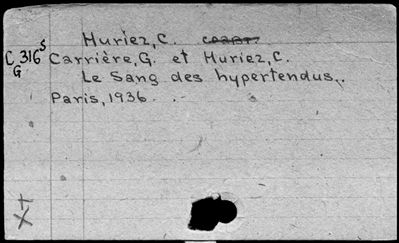 Huriez, C.
C 316 s Carrière, G. et Huriez, C.
G
Le Sang des hypertendus..
Paris, 1936. .